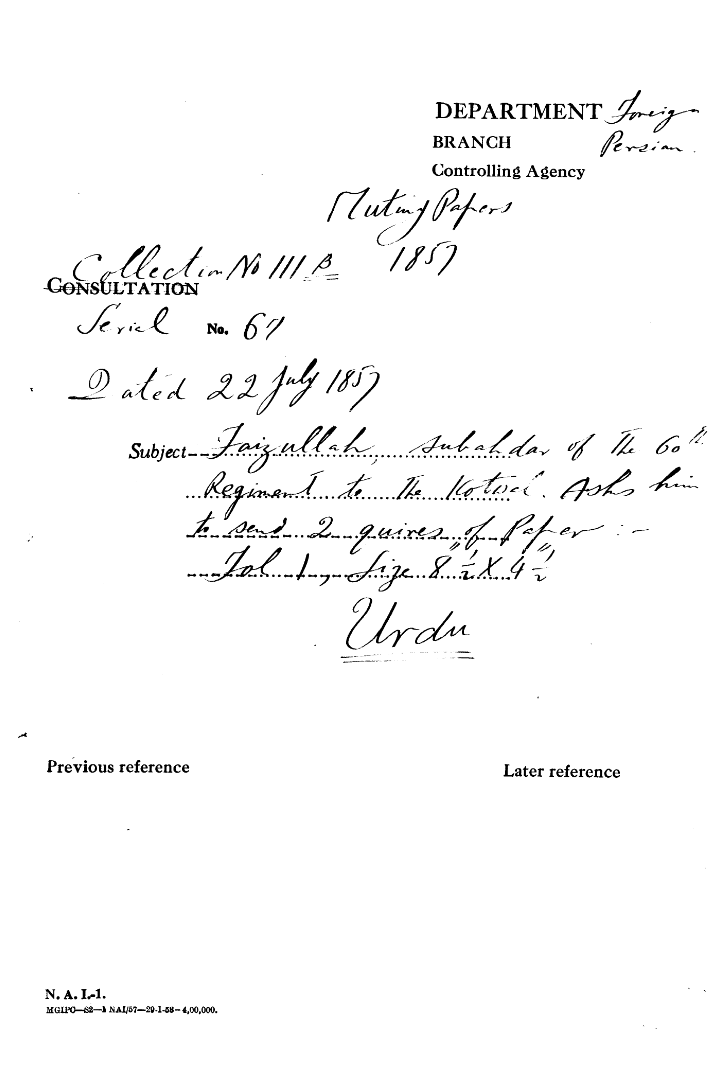 DEPARTMENT Foreign
BRANCH Persian.
Controlling Agency
Mutiny Papers
Collection No 111 B 1857
CONSULTATION
Serial No. 67
Dated 22 July 1857
Subject Faizullah, subahdar of the 60th
Regiment to the Kotwal. Asks him
to send 2 quires of Paper :-
Fol 1, Size 8 1/2" X 4 1/2"
Urdu
Previous reference Later reference
N. A. I.-1.
MGIPO—S2—1 NAI/57—29-1-58—4,00,000.